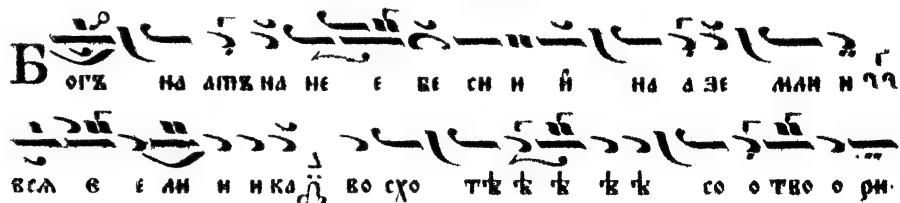 Богъ на атъ на не е бе си и й на а зе мли и
всѧ є е ли и и ка во схо тѣ ѣ ѣ ѣ ѣ со о тво о ри.